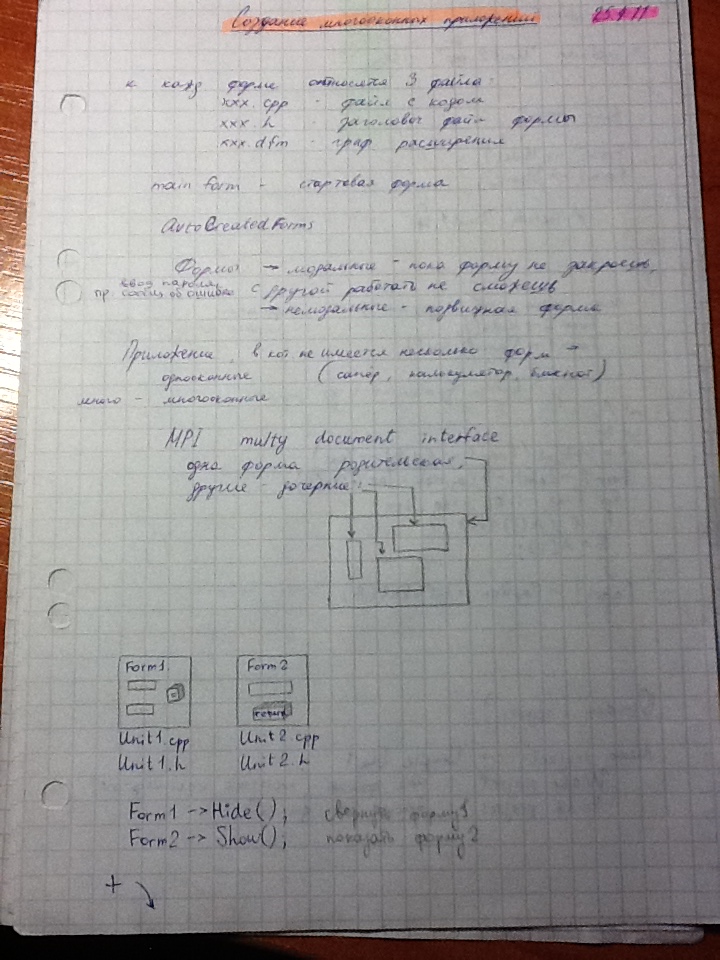 Создание многооконных приложений
к кажд форме относятся 3 файла:
xxx.cpp - файл с кодом
xxx.h - заголовоч файл формы
xxx.dfm - граф расширения
main form - стартовая форма
AutoCreatedForms
Формы → модальные - пока форму не закроешь,
ввод пароля,
пр. сообщ об ошибке с другой работать не сможешь
→ немодальные - подвижная форма
Приложение, в кот не имеется несколько форм -
однооконные (сапёр, калькулятор, блокнот)
много - многооконные
MPI multy document interface
одна форма родительская,
другие - дочерние
Form1 Form 2
return
Unit1.cpp Unit2.cpp
Unit1.h Unit2.h
Form1 -> Hide(); свернуть форму1
Form2 -> Show(); показать форму2
+